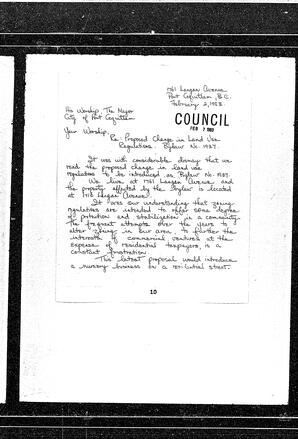 1761 Langan Avenue
Port Coquitlam, B.C.
February 2, 1983.
His Worship, The Mayor
City of Port Coquitlam
COUNCIL
FEB 7 1983
Your Worship,
Re: Proposed Change in Land Use
Regulations. Bylaw No. 1937.
It was with considerable dismay that we
read the proposed change in land use
regulations to be introduced as Bylaw No. 1937.
We live at 1761 Langan Avenue and
the property affected by the Bylaw is located
at Langan Avenue.
It was our understanding that zoning
regulations are intended to offer some degree
of protection and stabilization in a community.
The frequent attempts over the years to
alter zoning in our area, to further the
interests of commercial ventures at the
expense of residential taxpayers, is a
constant frustration.
This latest proposal would introduce
a nursery business on a residential street.
10